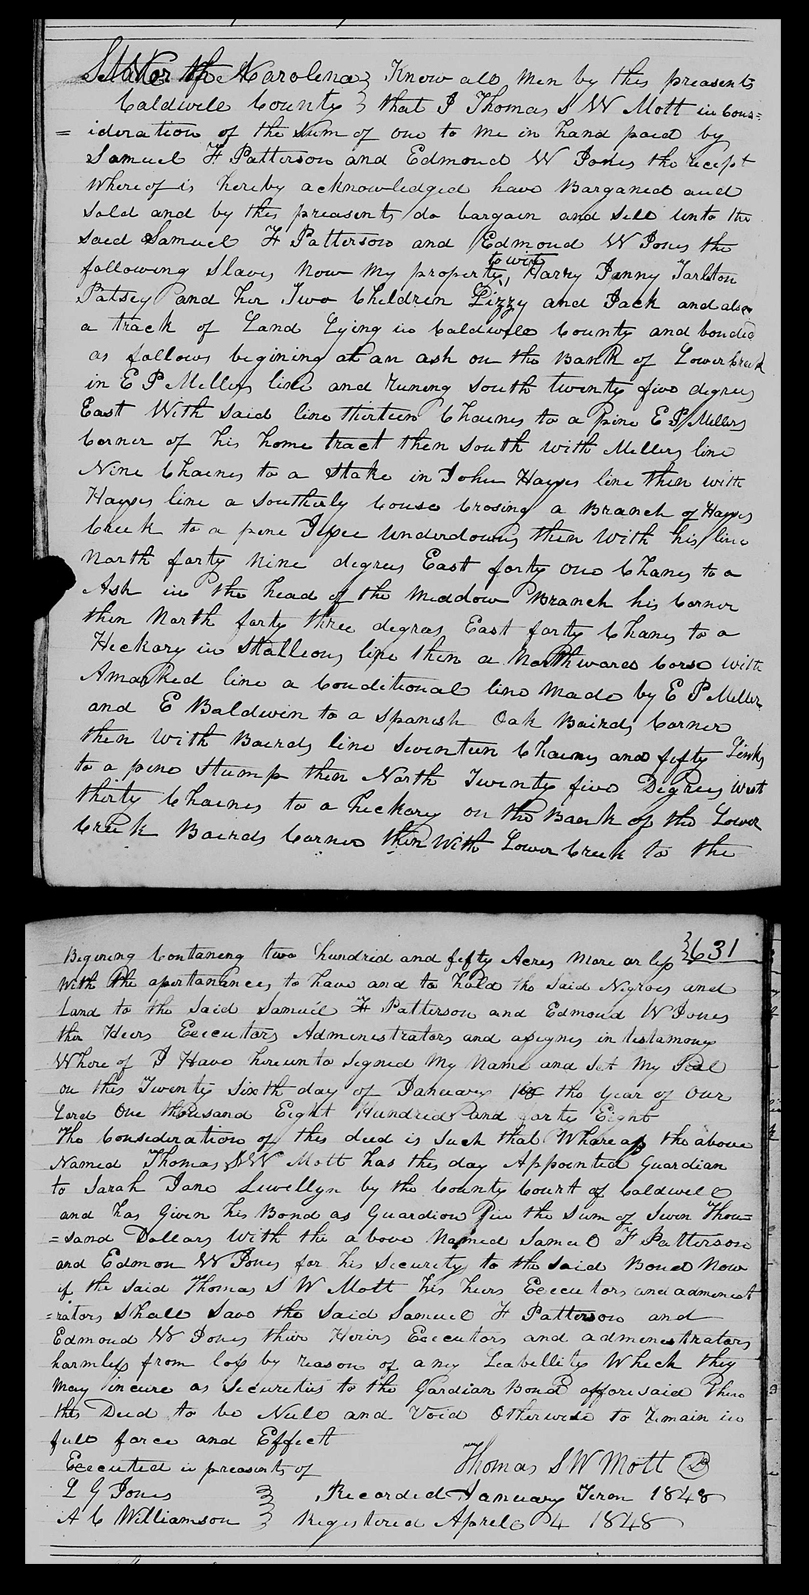 State of N Carolina } Know all Men by this preasents
Caldwell County } that I Thomas S W Mott in Cons=
= ideration of the Sum of one to me in hand paid by
Samuel F Patterson and Edmond W Jones the recept
Whereof is hereby acknowledged have Barganed and
Sold and by this preasents do bargain and Sell unto the
Said Samuel F Patterson and Edmond W Jones the
following Slaves Now My property towit Harry Fanny Tarlton
Patsey and her Two Children Lizzy and Jack and also
a track of Land Lying in Caldwell County and bouded
as follows begining at an ash on the Bank of Lower Creek
in E P Millers line and runing South twenty five degrees
East With Said line thirteen Chaines to a pine E P Millers
Corner of his home tract then South with Millers line
Nine Chaines to a Stake in John Hayes line then with
Hayses line a Southerly Couse Crosing a Branch of Hayses
Creek to a pine Underdowns then With his line
North forty Nine degrees East forty one Chanes to a
Ash in the head of the Meddow Branch his Corner
then North forty three degras East forty Chanes to a
Hickory in Stallions line then a Northward Corse with
Amarked line a Conditional line Made by E P Miller
and E Baldwin to a Spanish Oak Bairds Corner
then With Bairds line Seventeen Chaines and fifty Links
to a pine Stump then North Twenty five Degrees West
thirty Chaines to a hickory on the Bank of the Lower
Creek Bairds Corner then With Lower Creek to the
631
Begining Contaning two hundrid and fifty Acres More or less
With the apertanances to have and to hold the Said Negroes and
Land to the Said Samuel F Patterson and Edmond W Jones
ther Heirs Executors Administrators and assignes in testamony
Where of I Have hereunto Signed My Name and Set My Seal
on this Twenty Sixth day of January in the year of Our
Lord One thousand Eight Hundred and forty Eight
The Consideration of this deed is Such that Whareas the above
Named Thomas S W Mott has this day Appointed Guardian
to Sarah Jane Lewellyn by the County Court of Caldwell
and has Given his Bond as Guardion in the Sum of Seven Thou=
=sand Dollars With the above Named Samuel F Patterson
and Edmon W Jones for his Security to the Said Bond Now
if the Said Thomas S W Mott his heirs Executors and administ
=rators Shall Save the Said Samuel F Patterson and
Edmond W Jones their Heirs Executors and administrators
harmless from loss by reason of any Leabillity Which they
May incure as Securities to the Gardian Bond afforesaid Then
this Deed to be Null and Void Otherwise to remain in
full force and Effect
Executed in preasents of Thomas S W Mott
L G Jones } Recorded January Term 1848
A C Williamson } Registered April 4 1848